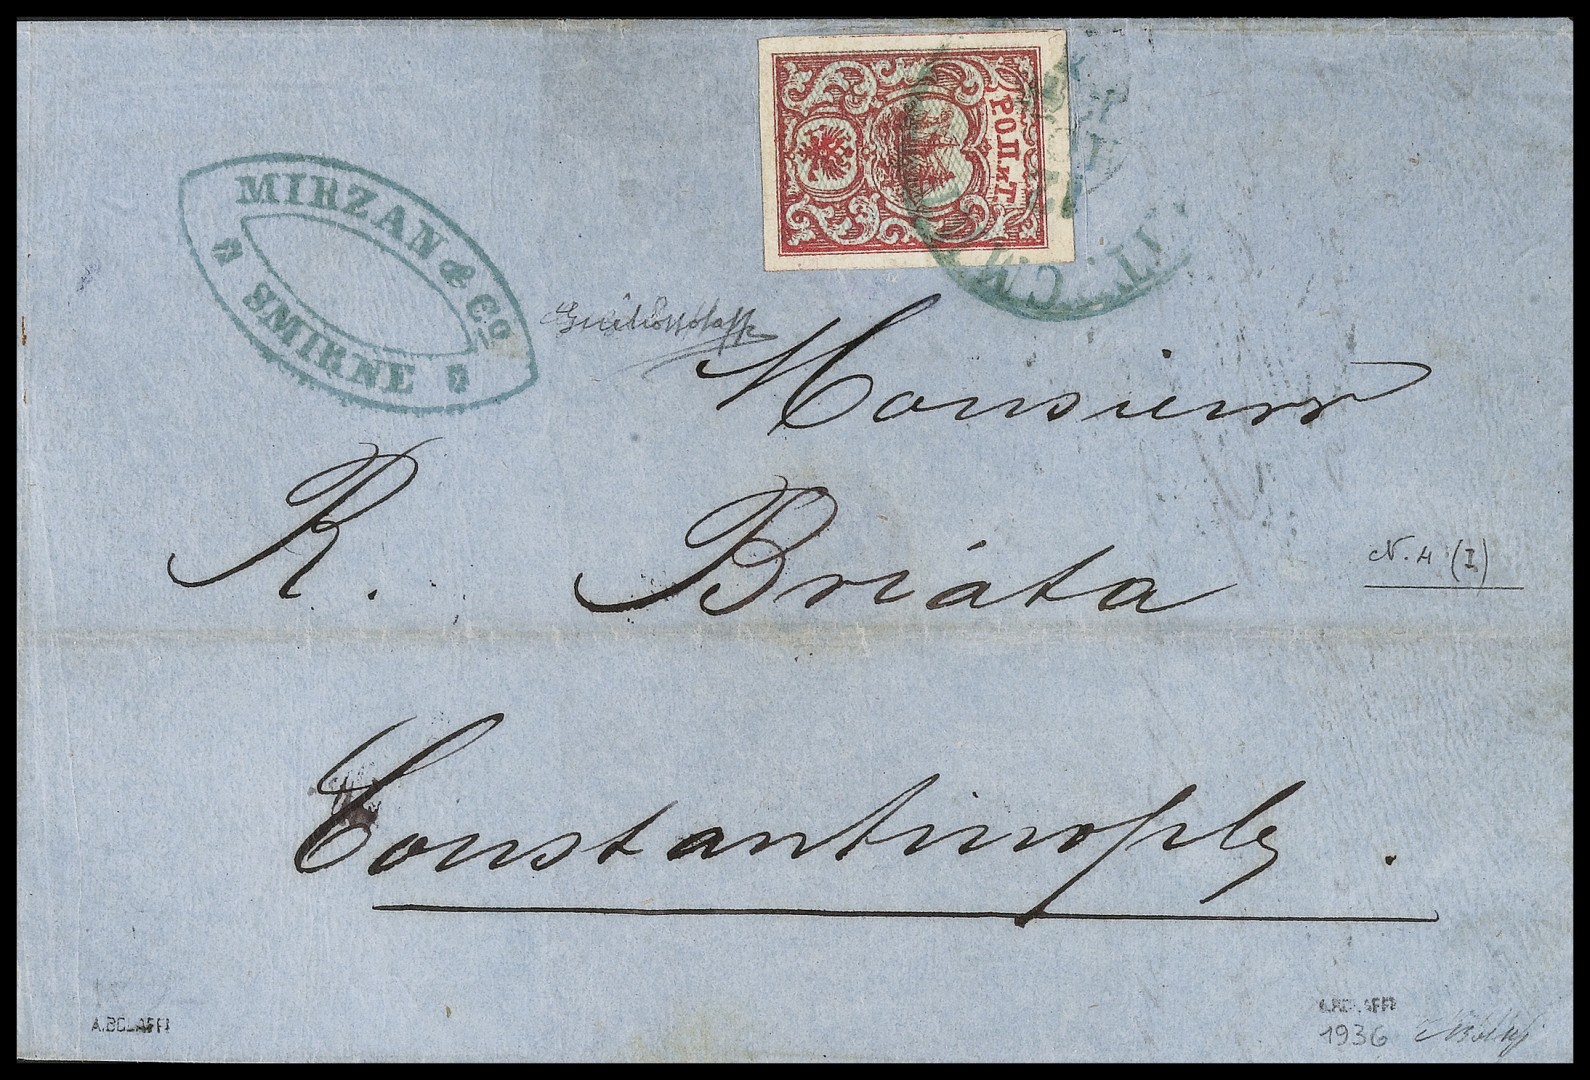 РОПиТ.
MIRZAN & Co
SMIRNE
Monsieur
R. Briáta
N. 4 (I)
Constantinople.
A.BOLAFFI
A.BOLAFFI
1936